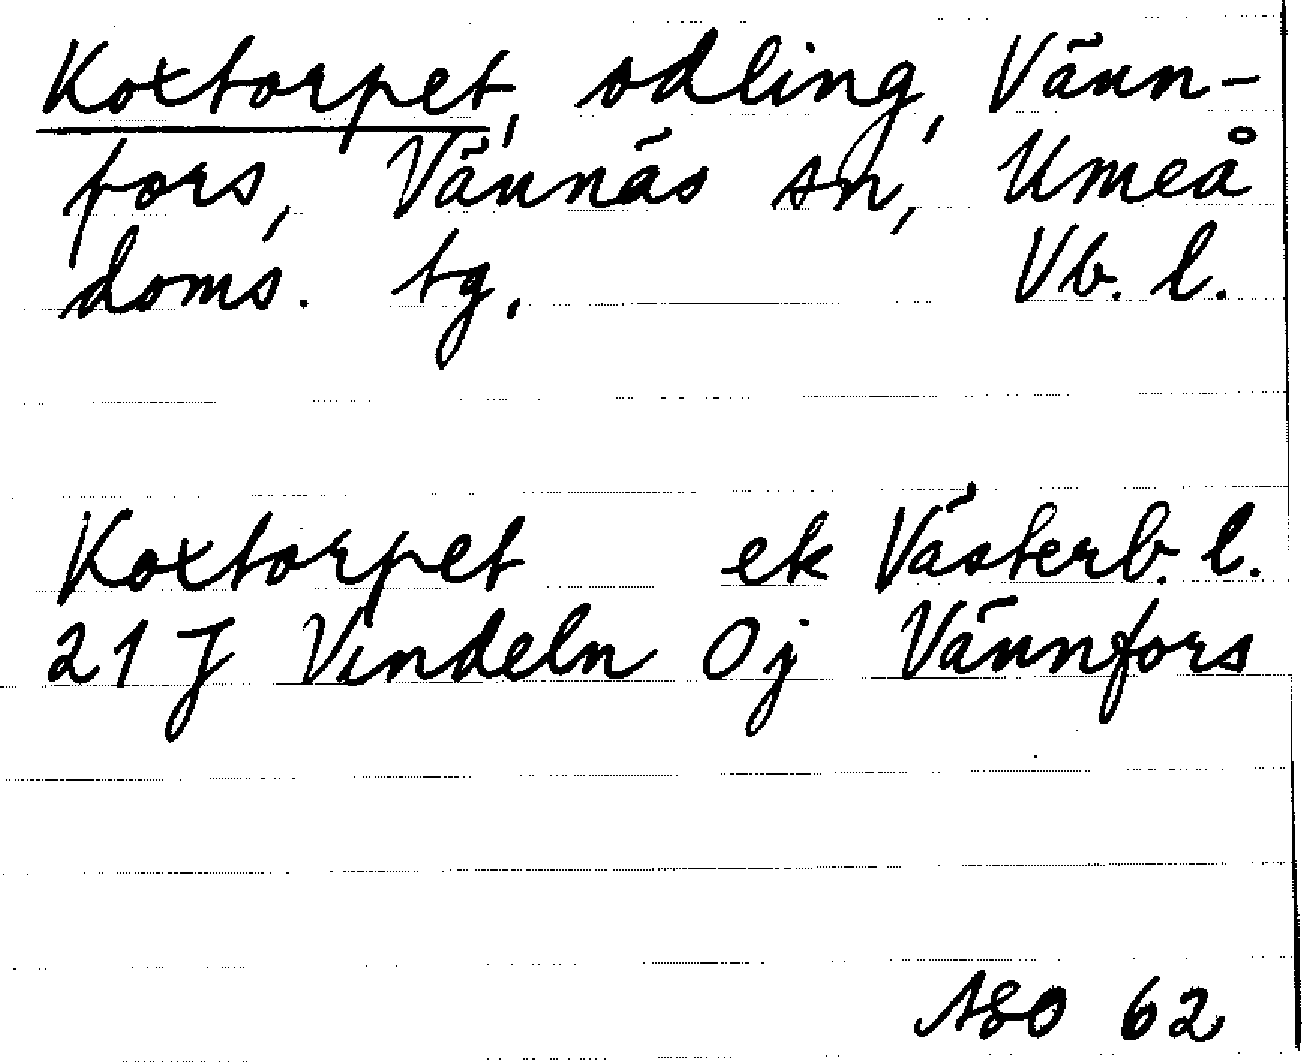 Koxtorpet, odling, Vänn-
fors, Vännäs sn, Umeå
doms. tg. Vb. l.
Koxtorpet ek Västerb. l.
21 J Vindeln 0j Vännfors
ASO 62